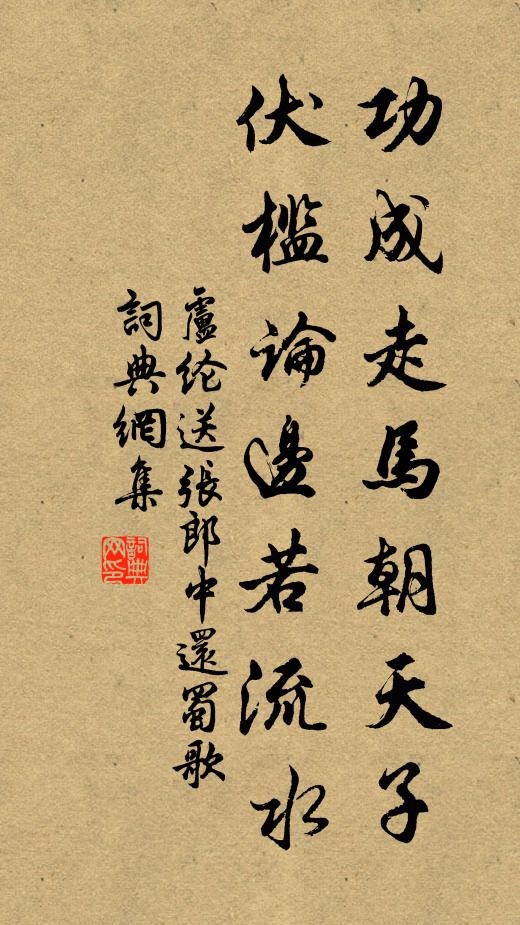 功成走馬朝天子
伏檻論邊若流水
盧纶送張郎中還蜀歌
詞典網集
詞典
网印